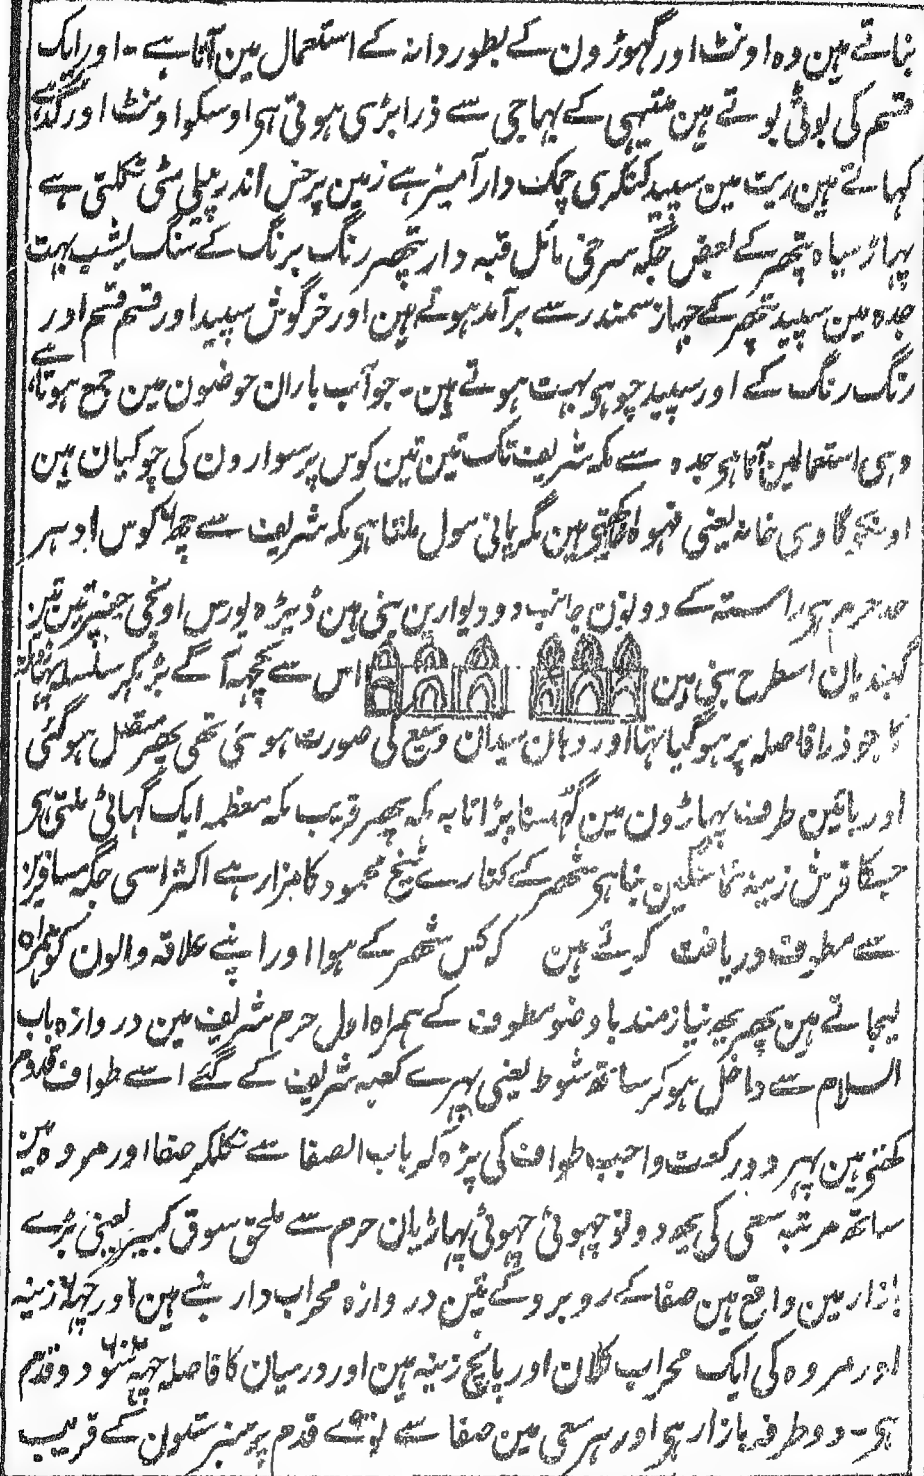 بناتے ہین وہ اونٹ اور گھوڑون کے بطور دانہ کے استعمال مین آتا ہے - اور ایک
قسم کی بوٹی بوتے ہین متیہی کے پہاجی سے ذرا بڑی ہوتی ہی اوسکو اونٹ اور گدہے
کہاتے ہین ریت مین سپید کنکری چمک دار آمیز ہے زمین پر جس اندر پیلی مٹی نکلتی ہے
پہاڑ سیاہ پتھر کے بعض جگہ سرخی مائل قبہ دار پتھر رنگ برنگ کے سنگ یشب بہت
جدہ مین سپید پتھر کے جہاز سمندر سے برآمد ہوتے ہین اور خرگوش سپید اور قسم قسم اور
رنگ رنگ کے اور سپید چوہی بہت ہوتے ہین - جو آب باران حوضون مین جمع ہوتا ہے
وہی استعمالمین آتا ہو جدہ سے مکہ شریف تک تین تین کوس پر سوارون کی چوکیان ہین
اونچگا وی خانہ یعنی قہوہ ہین مگر پانی سول ملتا ہو مکہ شریف سے چھ کوس ادہر
حد حرم ہی راستہ کے دونون جانب دو دیوارین بنی ہین ڈیڑہ پورس اونچی جنپر تین تین
گنبدیان اسطرح بنی ہین اس سے کچہہ آگے بڑہکر سلسلہ پہاڑ
کا جو ذرا فاصلہ پر ہو گیا تہا اور وہان میدان وسیع کی صورت ہو گئی تھی پھر متصل ہو گئی
اور بائین طرف پہاڑون مین گہسنا پڑاتا بہ مکہ پھر قریب مکہ معظمہ ایک گہاٹی ملتی ہی
جسکا فرش زینہ نما سنگین بنا ہی شہر کے کنارے شیخ محمود کا مزار ہے اکثر اسی جگہ مسافرین
سے مطوف دریافت کرتے ہین کہ کس شہر کے ہو اور اپنے علاقہ والون کو ہمراہ
لیجاتے ہین پھر یہ نیازمند باوضو مطوف کے ہمراہ اول حرم شریف مین دروازہ باب
السلام سے داخل ہو کر ساتھ شوط یعنی پہرے کعبہ شریف کے کئے اسے طواف قدوم
کہتی ہین پہر دو رکعت واجب طواف کی پڑہ کر باب الصفا سے نکلکر صفا اور مروہ مین
ساتھ مرتبہ سعی کی یہ دونو چہوٹی چہوٹی پہاڑیان حرم سے ملحق سوق کبیر یعنی بڑے
بازار مین واقع ہین صفا کے روبرو کے تین دروازہ محراب دار بنے ہین اور زینہ
اور مروہ کی ایک محراب کلان اور پانچ زینہ ہین اور درمیان کا فاصلہ دو قدم
ہی - دو طرفہ بازار ہی اور ہر سعی مین صفا سے قدم پر سبز ستون کے قریب